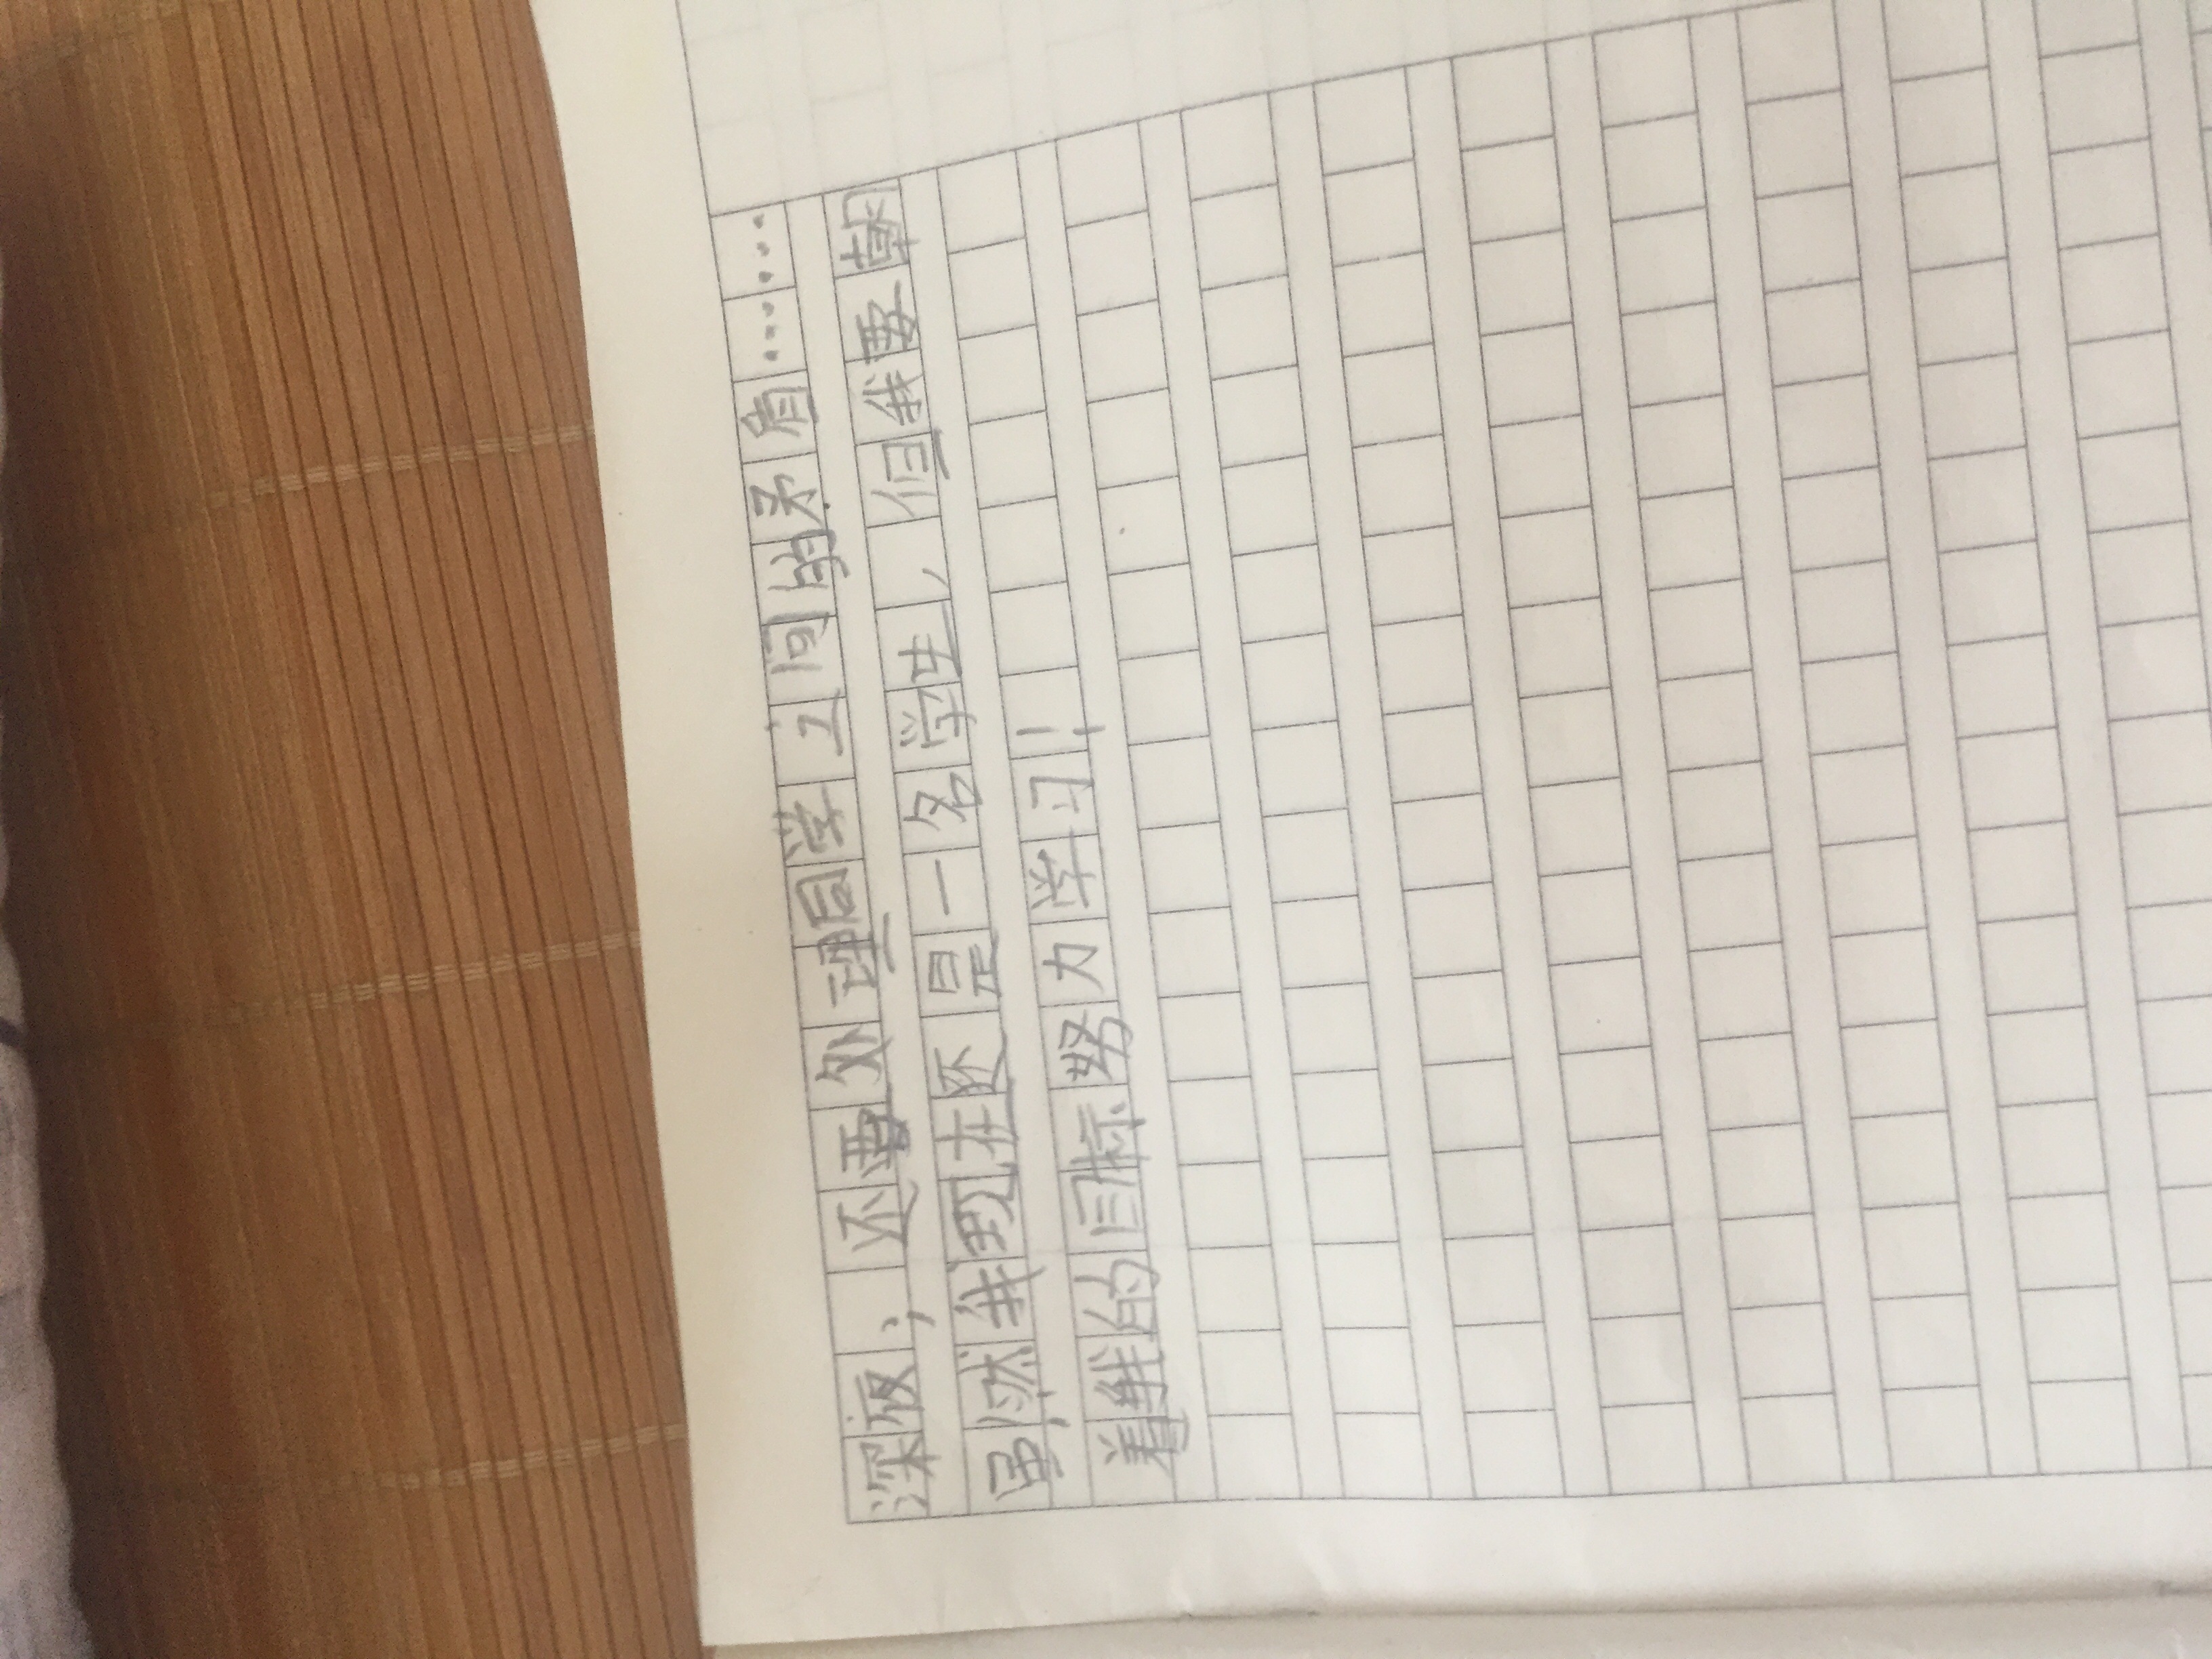 深夜，还要处理同学之间的矛盾……
虽然我现在还是一名学生，但我要朝
着我的目标努力学习！